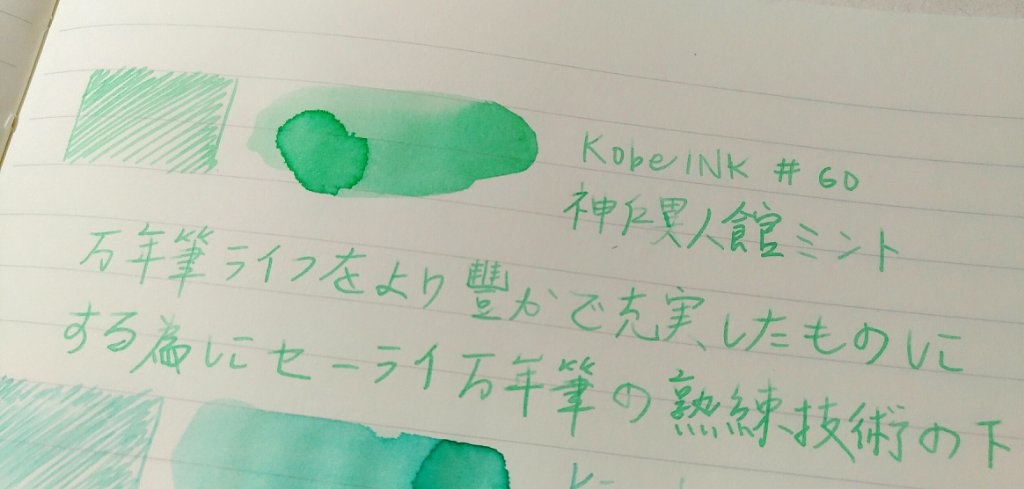 Kobe INK # 60
神戸異人館ミント
万年筆ライフをより豊かで充実したものに
する為にセーラー万年筆の熟練技術の下